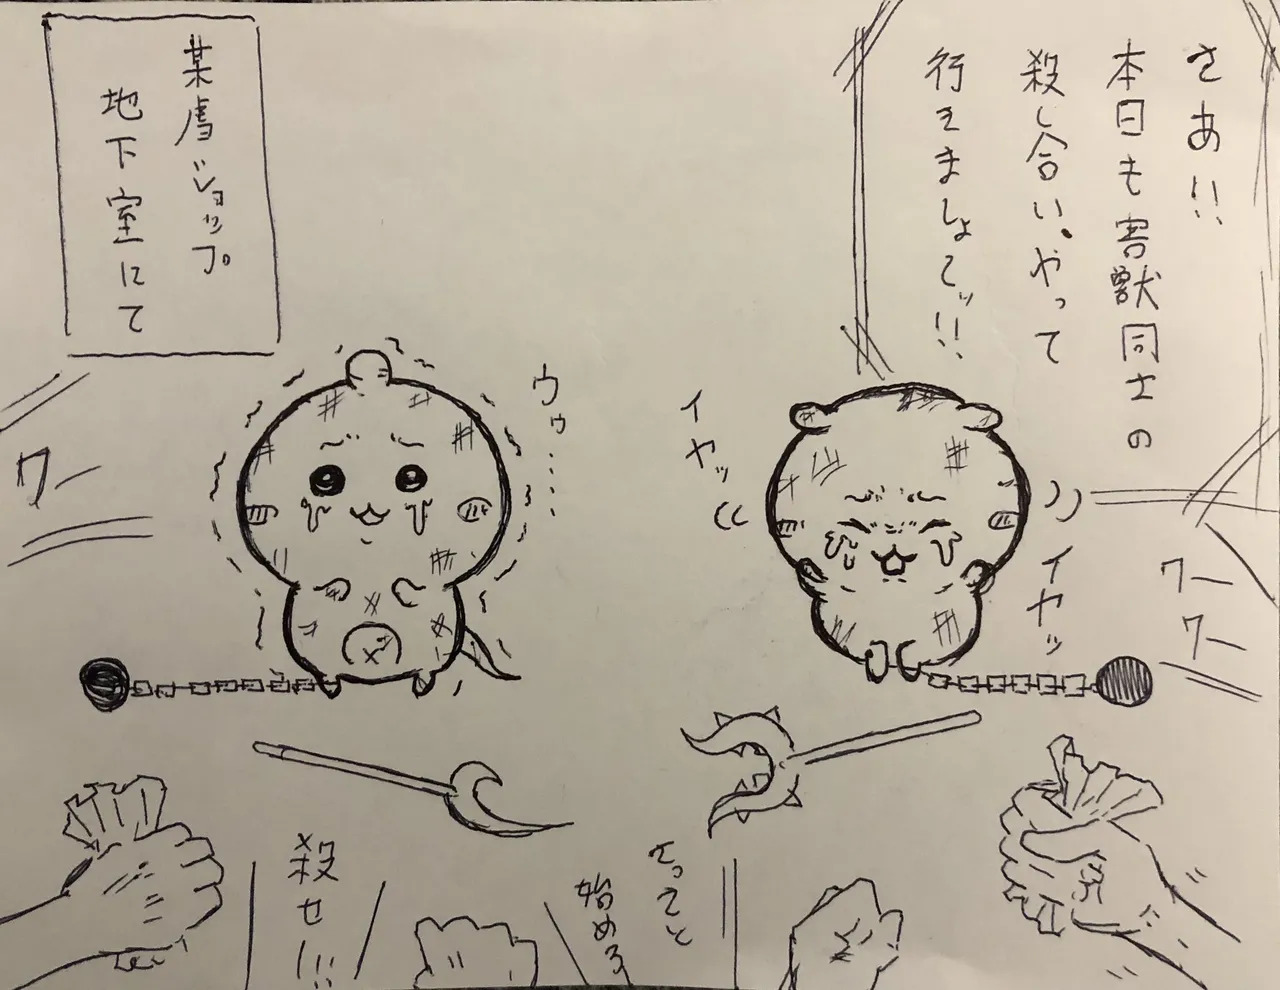 さあ!!
本日も害獣同士の
殺し合い、やって
行きましょてッ!!
某虐ショップ
地下室にて
ウゥ……
イヤッ
イヤッ
ワー
ワー
ワー
さってと
始めろ
殺せ!!!